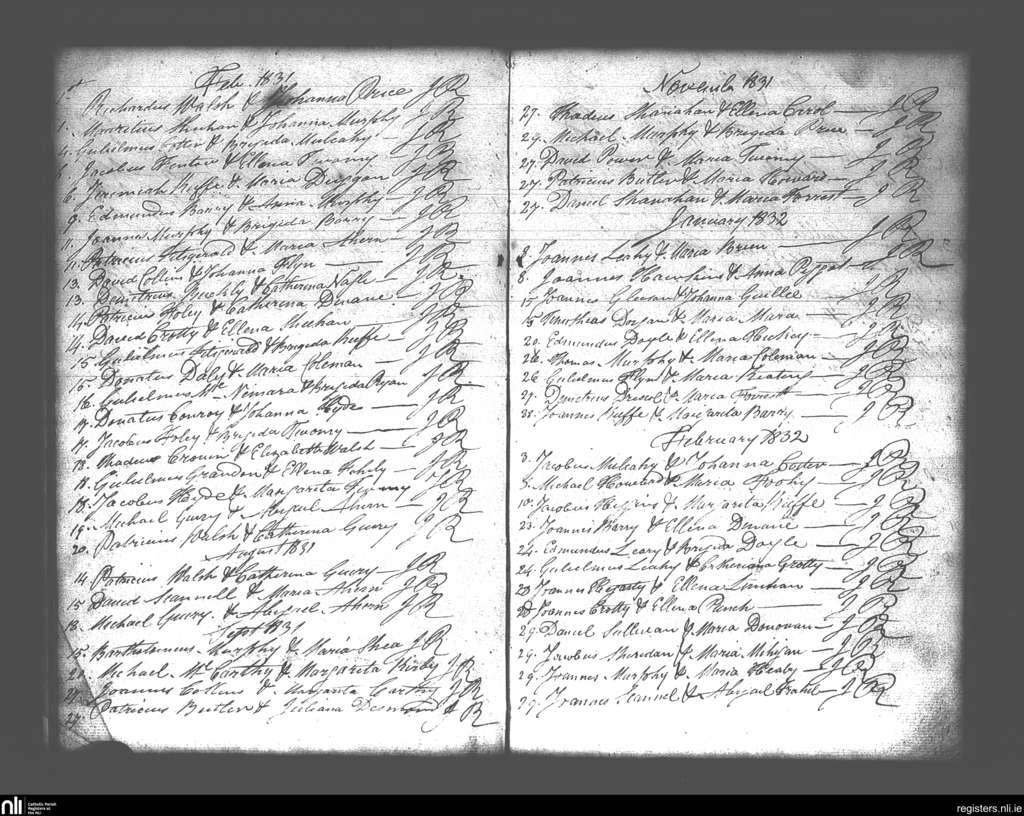 Feb. 1831
1st Richardus Walsh & Johanna Price JR
1. Mauritius Shuhan & Johanna Murphy JR
4. Gulielmus & Brigida Mulcahy JR
5. Jacobus & Ellena Twomy JR
6. Jeremiah Keffe & Maria Duggan JR
9. Edmundus Barry & Anna Murphy JR
11. Joannes Murphy & Brigida Barry JR
11. Patricius Fitzgerald & Maria Ahern JR
13. David Collins & Johanna Flyn JR
13. Demetrius & Catherina Nagle JR
14. Patricius Foley & Catherina Dinane JR
14. David Crotty & Ellena Sheehan JR
15. Gulielmus Fitzgerald & Brigida Keffe JR
15. Donatus Daly & Maria Coleman JR
16. Gulielmus Mc Nemara & Brigida Ryan JR
17. Donatus Conroy & Johanna Hyde JR
17. Jacobus Foley & Brigida Twomy JR
18. Thadeus Cronin & Elizabeth Walsh JR
18. Gulielmus Grandon & Ellena JR
18. Jacobus Hyde & Margarita JR
19. Michael Guiry & Ahern JR
20. Patricius Walsh & Catherina Guiry JR
August 1831
14. Patricius Walsh & Catherina Guiry JR
15 David Scannell & Maria Ahern JR
18. Michael Guiry & Ahern JR
Sept 1831
15. Bartholomeus Murphy & Maria Shea JR
Michael Mc Carthy & Margarita Kirby JR
Joannes Collins & Margarita Carthy JR
27. Patricius Butler & Juliana Desmond JR
Novenula 1831
27. Thadeus Shanahan & Ellena Carrol JR
29. Michael Murphy & Brigida JR
27. David Power & Maria Twomy JR
27. Patricius Butler & Maria Howard JR
27. Daniel Shanahan & Maria Forrest JR
January 1832
8 Joannes Leahy & Maria Brien JR
8. Joannes Hawkins & Anna JR
15 Joannes Gleeson & Johanna JR
15 Dorgan & Maria JR
20. Edmundus Doyle & Ellena JR
26. Thomas Murphy & Maria Coleman JR
26 Gulielmus Flyn & Maria Keating JR
27. Demetrius & Maria Forrest JR
28. Joannes Keffe & Margarita Barry JR
February 1832
3. Jacobus Mulcahy & Johanna JR
5. Michael Howard & Maria JR
10. Jacobus & Margarita Keffe JR
23. Joannes Barry & Ellena Dinane JR
24. Edmundus Leary & Brigida Doyle JR
24. Gulielmus Leahy & Catherina Crotty JR
28 Joannes Hegarty & Ellena Linehan JR
28 Joannes Crotty & Ellena JR
29. Daniel Sullivan & Maria Donovan JR
29. Jacobus Sheedan & Maria Mihigan JR
29. Joannes Murphy & Maria Healy JR
29. Joannes Scannel & Abigail JR
nli
Catholic Parish
Registers at
the NLI
registers.nli.ie